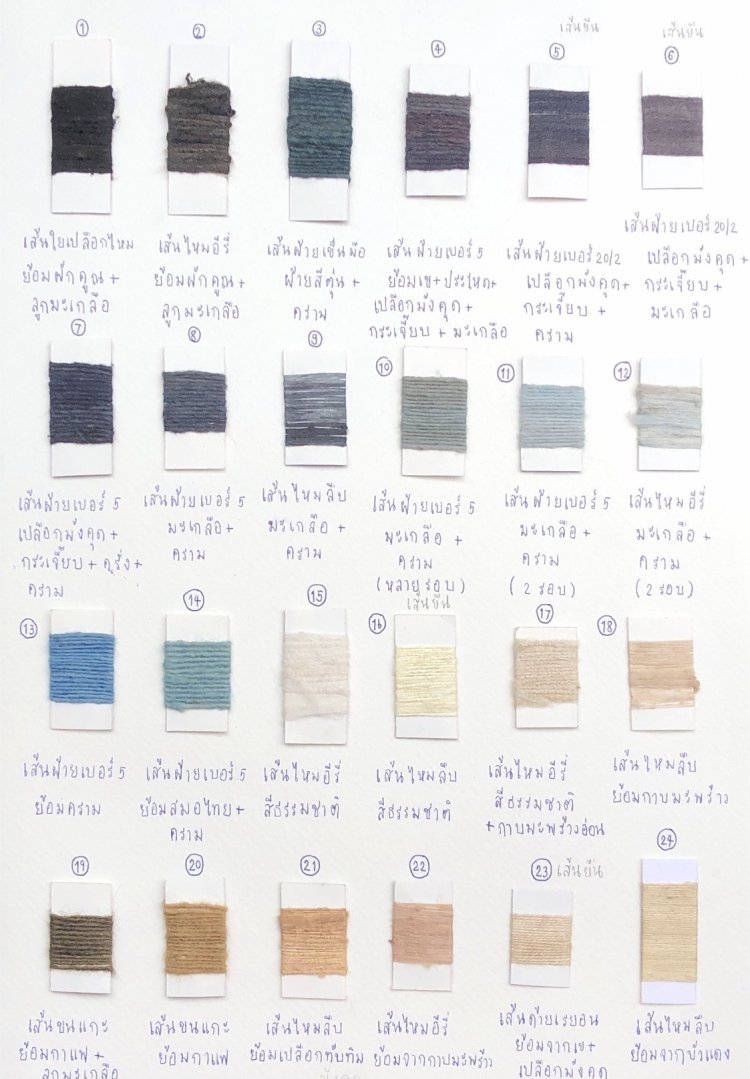 ①
เส้นใยเปลือกไหม
ย้อมฝักคูณ +
ลูกมะเกลือ
②
เส้นไหมอีรี่
ย้อมฝักคูณ+
ลูกมะเกลือ
③
เส้นฝ้ายเข็นมือ
ฝ้ายสีตุ่น +
คราม
④
เส้นฝ้ายเบอร์ 5
ย้อมเข+ประโหด+
เปลือกมังคุด+
กระเจี๊ยบ + มะเกลือ
เส้นยืน
⑤
เส้นฝ้ายเบอร์ 20/2
เปลือกมังคุด+
กระเจี๊ยบ +
คราม
เส้นยืน
⑥
เส้นฝ้ายเบอร์ 20/2
เปลือกมังคุด +
กระเจี๊ยบ +
มะเกลือ
⑦
เส้นฝ้ายเบอร์ 5
เปลือกมังคุด +
กระเจี๊ยบ + ครั่ง +
คราม
⑧
เส้นฝ้ายเบอร์ 5
มะเกลือ +
คราม
⑨
เส้นไหมลืบ
มะเกลือ +
คราม
⑩
เส้นฝ้ายเบอร์ 5
มะเกลือ +
คราม
(หลายรอบ)
⑪
เส้นฝ้ายเบอร์ 5
มะเกลือ +
คราม
(2 รอบ)
⑫
เส้นไหมอีรี่
มะเกลือ +
คราม
(2 รอบ)
⑬
เส้นฝ้ายเบอร์ 5
ย้อมคราม
⑭
เส้นฝ้ายเบอร์ 5
ย้อมสมอไทย+
คราม
⑮
เส้นไหมอีรี่
สีธรรมชาติ
เส้นยืน
⑯
เส้นไหมลืบ
สีธรรมชาติ
⑰
เส้นไหมอีรี่
สีธรรมชาติ
+กาบมะพร้าวอ่อน
⑱
เส้นไหมลืบ
ย้อมกาบมะพร้าว
⑲
เส้นขนแกะ
ย้อมกาแฟ+
ลูกมะเกลือ
⑳
เส้นขนแกะ
ย้อมกาแฟ
㉑
เส้นไหมลืบ
ย้อมเปลือกทับทิม
㉒
เส้นไหมอีรี่
ย้อมจากกาบมะพร้าว
㉓ เส้นยืน
เส้นด้ายเรยอน
ย้อมจากเข+
เปลือกมังคุด
㉔
เส้นไหมลืบ
ย้อมจากบัวแดง